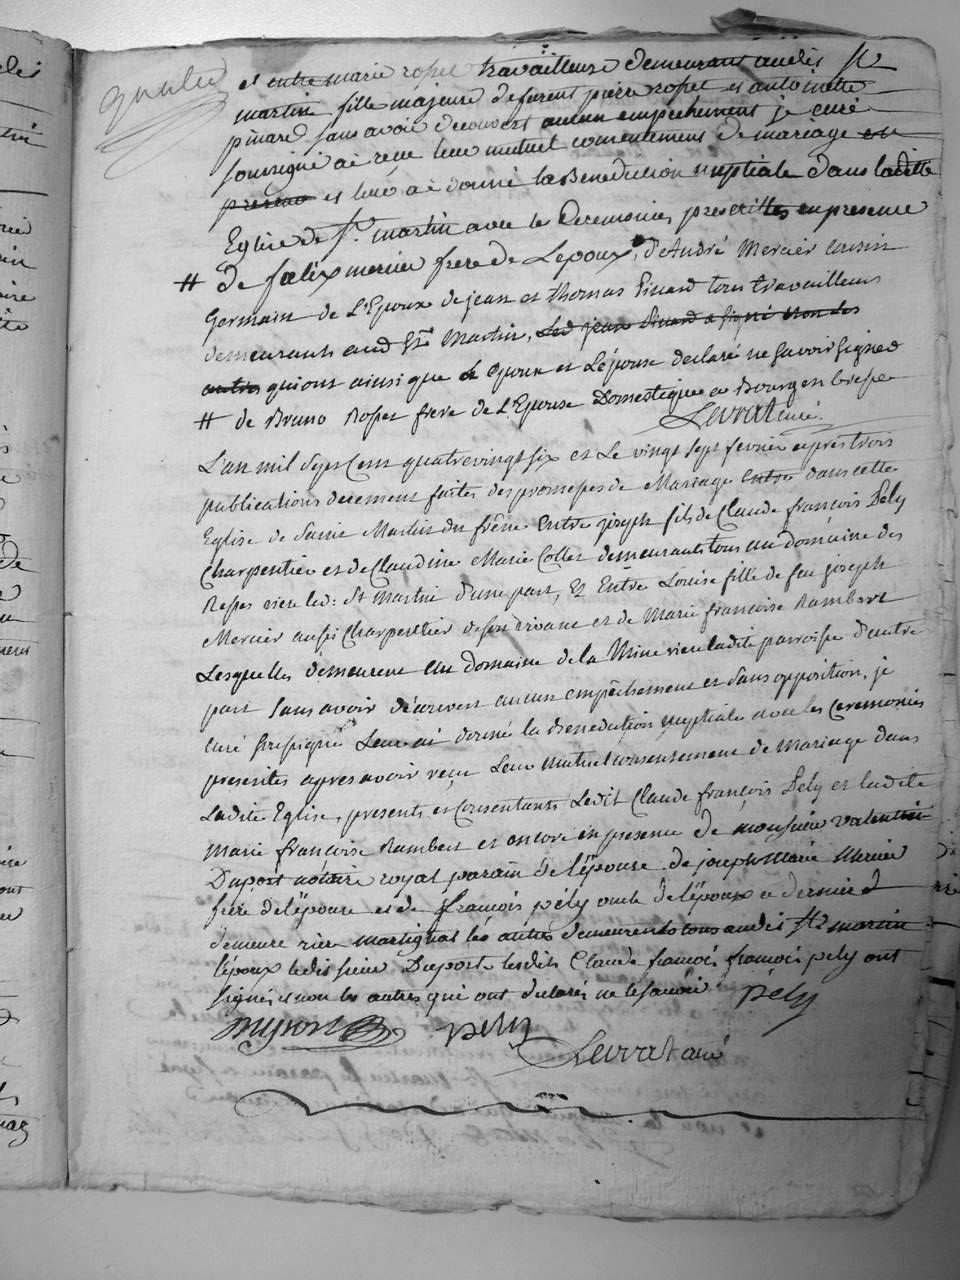 et entre marie rosset travailleuse demeurant audit St
martin fille majeure de furent pierre rosset et antoinette
pinard sans avoir decouvert aucun empechement je curé
soussigné ai recu leur mutuel consentement de mariage en
presence et leur ai donné la Benediction nuptiale dans ladite
Eglise de St. martin avec les Ceremonies prescrittes en presence
# de fœlix mercier frere de Lepoux, d'André Mercier cousin
Germain de L'Epoux de jean et Thomas Pinard tous travailleurs
demeurants aud St Martin, Led jean Pinard a signé non les
autres qui ont ainsi que epoux et L'épouse declaré ne savoir signer
# de Bruno Rosset frere de L'Epouse Domestique a Bourg en bresse
Levrat curé.
L'an mil Sept Cent quatre vingt six et Le vingt sept fevrier après trois
publications decement faites des promesses de Mariage entre dans cette
Eglise de Saint Martin du frêne Entre joseph fils de Claude françois Pély
Charpentier et de Claudine Marie Collet demeurants tous au domaine des
Mercier aussi Charpentier et de Marie françoise Rambert
Lesquelles demeurent au domaine de la Mine riere ladite parroisse d'autre
part sans avoir découvert aucun empêchement et sans opposition, je
curé soussigné Leur ai donné la Benediction nuptiale avec les Ceremonies
prescrites apres avoir reçu Leur Mutuel consentement de Mariage dans
Ladite Eglise, presents et Consentants Ledit Claude françois Pély et ladite
Marie françoise Rambert et encore en presence de monsieur valentin
Duport notaire royal parain de l'épouse de joseph Marie Mercier
frère de l'épouse et de françois pély oncle de l'époux ce dernier
demeure riere martignat les autres demeurents tous audit St martin
l'époux ledit sieur Duport lesdits Claude francoi, francoi pely ont
signés et non les autres qui ont declarés ne le savoir pely
Duport pely
Levrat curé